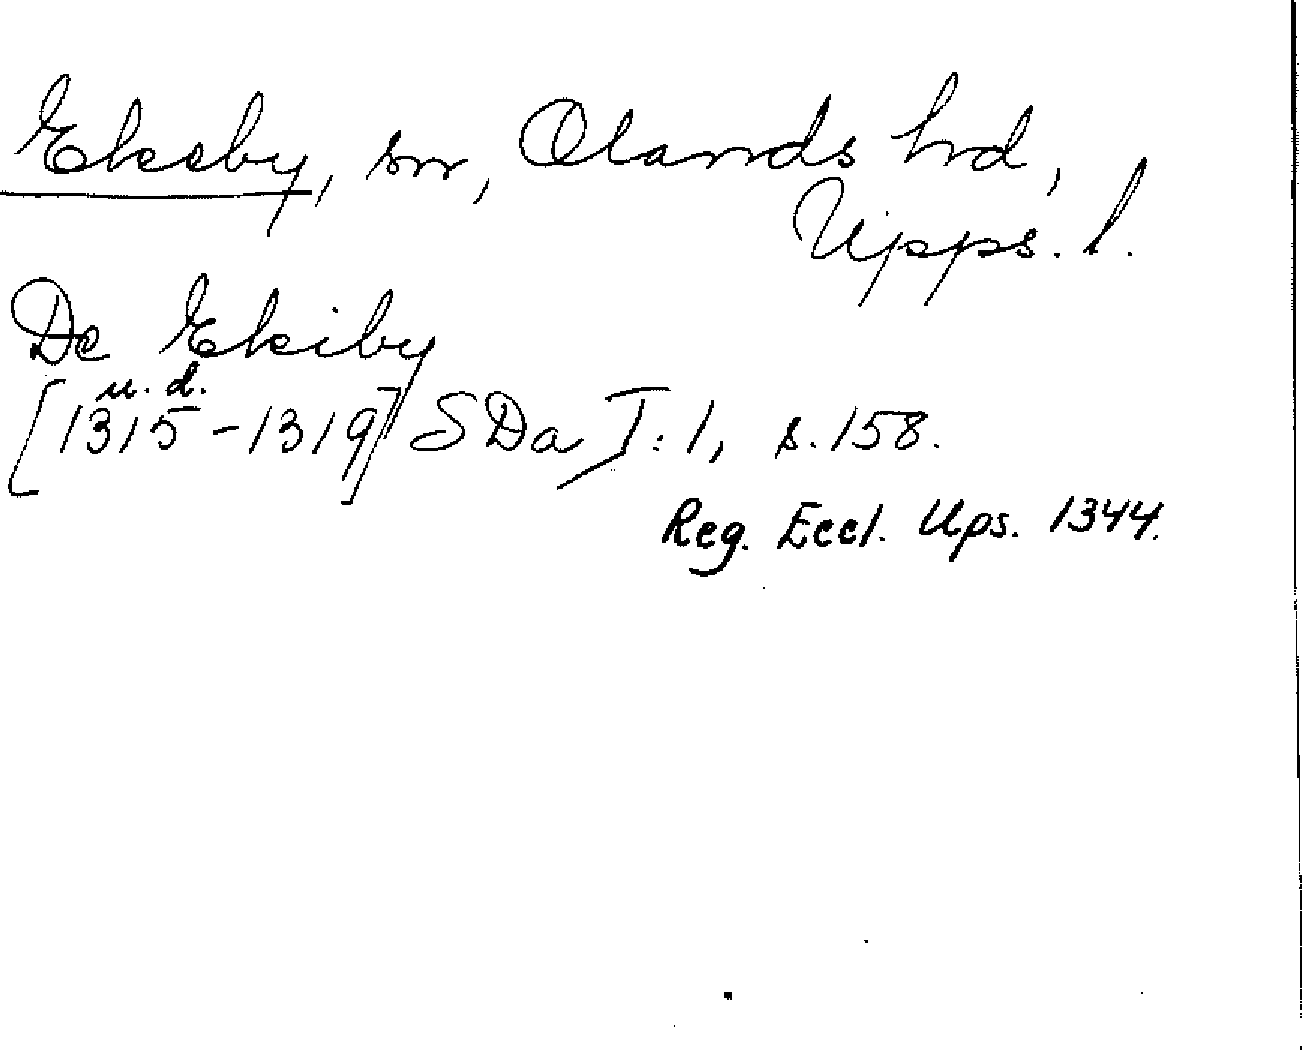 Ekeby, sn, Olands hd,
Upps. l.
De Ekiby
u. d.
[1315-1319] SDa I:1, s. 158.
Reg. Eccl. Ups. 1344.